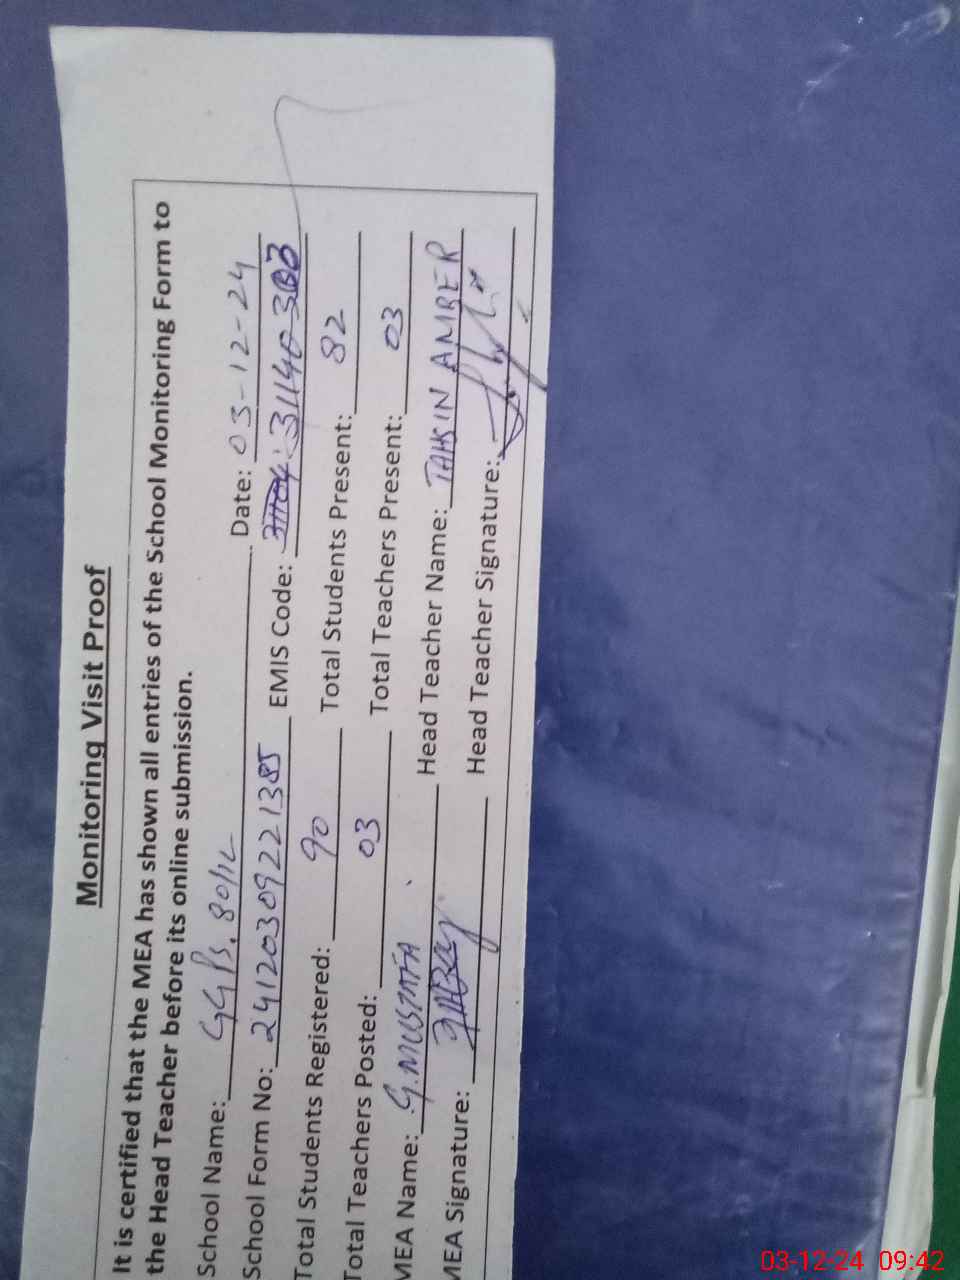 Monitoring Visit Proof
It is certified that the MEA has shown all entries of the School Monitoring Form to
the Head Teacher before its online submission.
School Name: GGPS. 80/12 Date: 03-12-24
School Form No: 24120309221385 EMIS Code:
Total Students Registered: 90 Total Students Present: 82
Total Teachers Posted: 03 Total Teachers Present: 03
MEA Name: G. MUSTAFA Head Teacher Name: TAHSIN AMBER
MEA Signature: Head Teacher Signature:
03-12-24 09:42